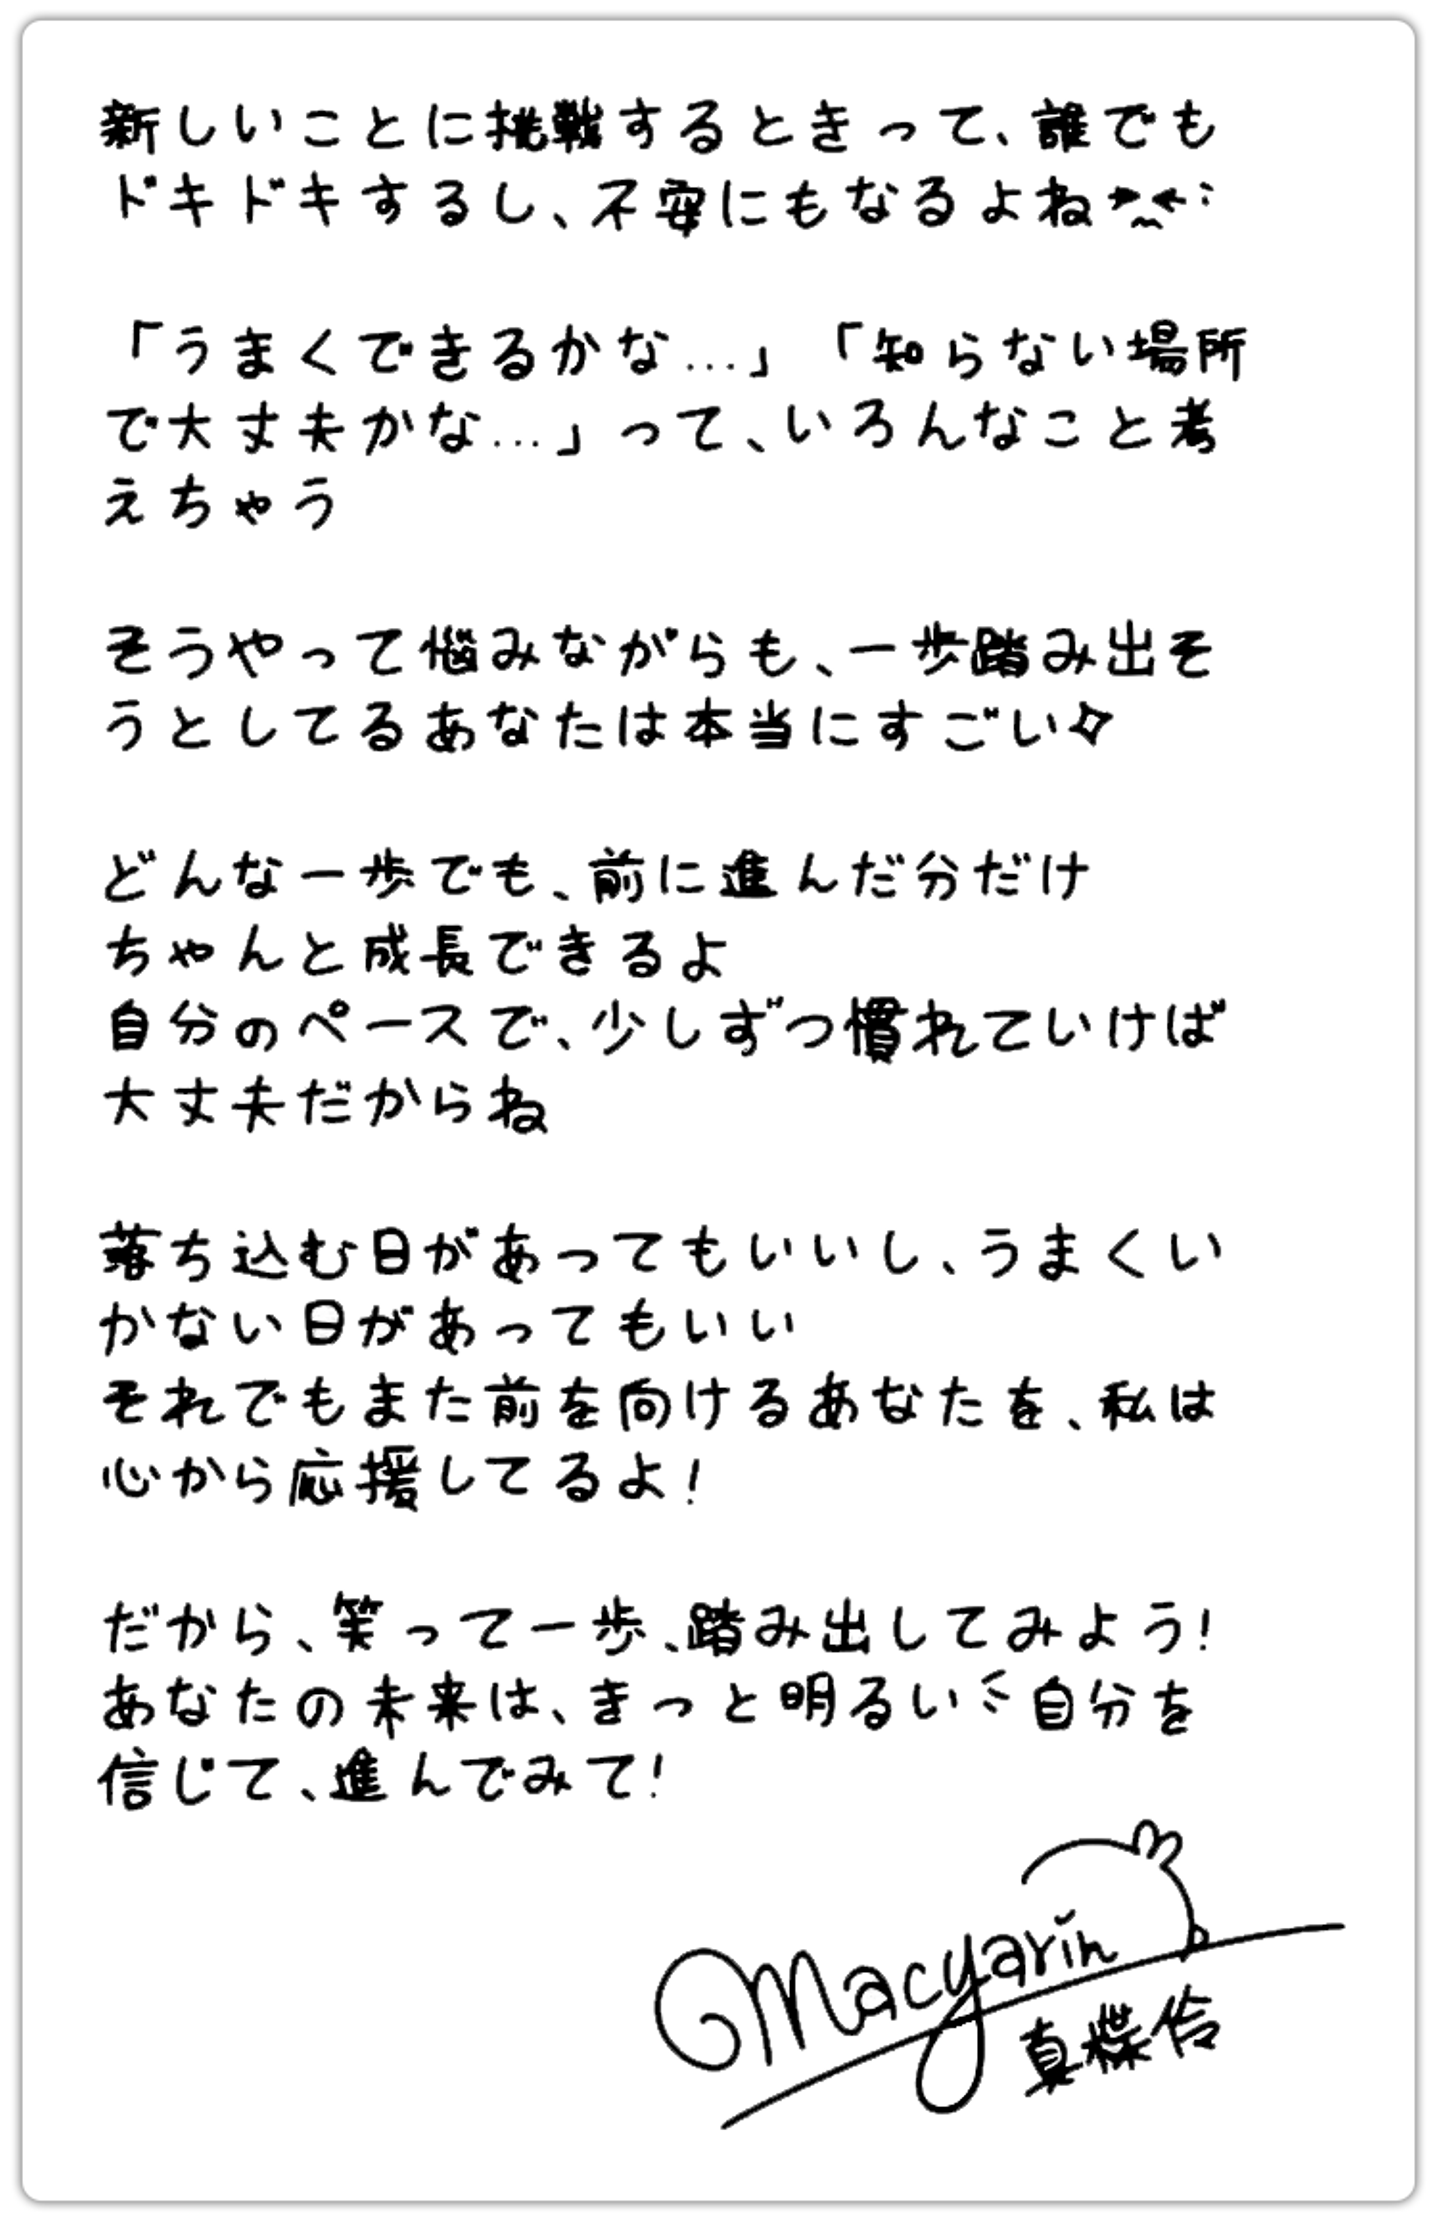 新しいことに挑戦するときって、誰でも
ドキドキするし、不安にもなるよね
「うまくできるかな…」「知らない場所
で大丈夫かな…」って、いろんなこと考
えちゃう
そうやって悩みながらも、一歩踏み出そ
うとしてるあなたは本当にすごい✧
どんな一歩でも、前に進んだ分だけ
ちゃんと成長できるよ
自分のペースで、少しずつ慣れていけば
大丈夫だからね
落ち込む日があってもいいし、うまくい
かない日があってもいい
それでもまた前を向けるあなたを、私は
心から応援してるよ!
だから、笑って一歩、踏み出してみよう!
あなたの未来は、きっと明るい 自分を
信じて、進んでみて!
Macyarin
真 伶